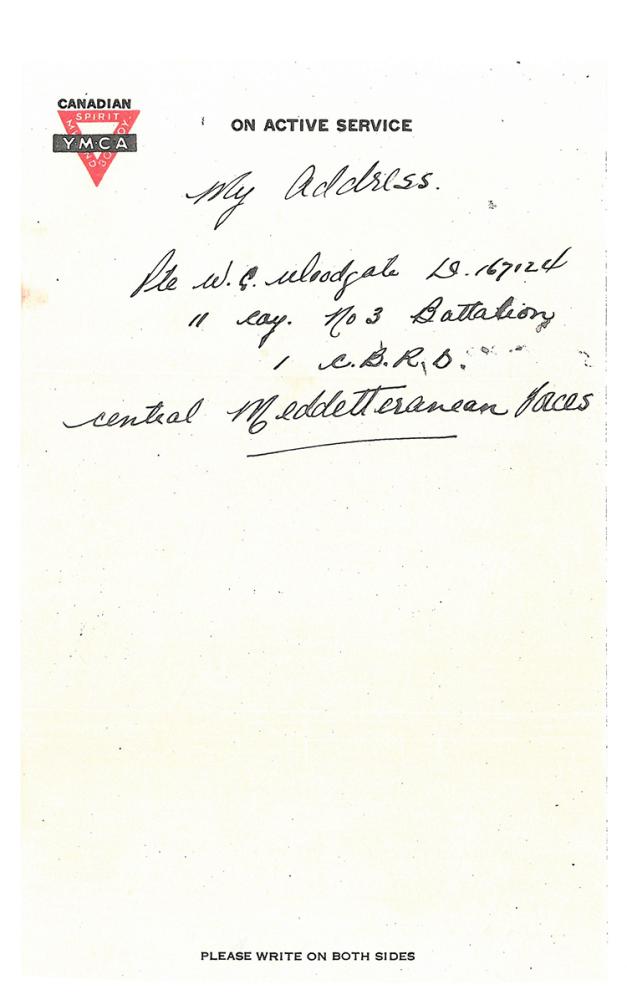 CANADIAN
SPIRIT
MIND BODY
Y·M·C·A
ON ACTIVE SERVICE
My Address.
Pte W. C. Woodgate D. 167124
11 coy. No 3 Battalion
1 C.B.R.D.
central Meddetteranean Forces
PLEASE WRITE ON BOTH SIDES